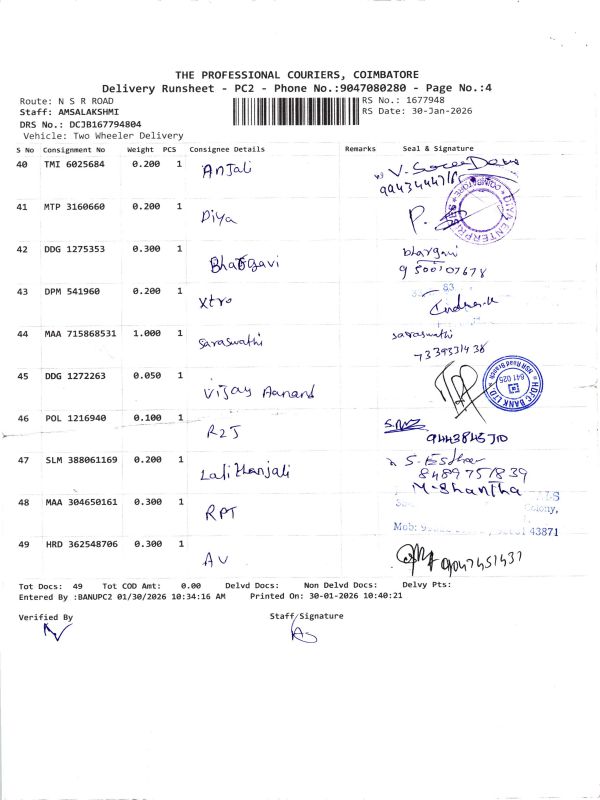 THE PROFESSIONAL COURIERS, COIMBATORE
Delivery Runsheet - PC2 - Phone No.:9047080280 - Page No.:4
Route: N S R ROAD
RS No.: 1677948
Staff: AMSALAKSHMI
RS Date: 30-Jan-2026
DRS No.: DCJB167794804
Vehicle: Two Wheeler Delivery
S No Consignment No Weight PCS Consignee Details Remarks Seal & Signature
40 TMI 6025684 0.200 1 Anjali
41 MTP 3160660 0.200 1 Diya P.
DIYA ENTERPRISES COIMBATORE
42 DDG 1275353 0.300 1 Bhargavi bhargavi
9500707678
43 DPM 541960 0.200 1 Xtro
44 MAA 715868531 1.000 1 Saraswathi saraswathi
7339331438
45 DDG 1272263 0.050 1 Vijay Aanand
HDFC BANK LTD NSR Road Branch 641 025
46 POL 1216940 0.100 1 R2J
47 SLM 388061169 0.200 1 Lalithanjali S. Esther
8489751839
M-Shantha
48 MAA 304650161 0.300 1 RPT
Colony,
Mob: 43871
49 HRD 362548706 0.300 1 AV 9047451437
Tot Docs: 49 Tot COD Amt: 0.00 Delvd Docs: Non Delvd Docs: Delvy Pts:
Entered By :BANUPC2 01/30/2026 10:34:16 AM Printed On: 30-01-2026 10:40:21
Verified By Staff Signature